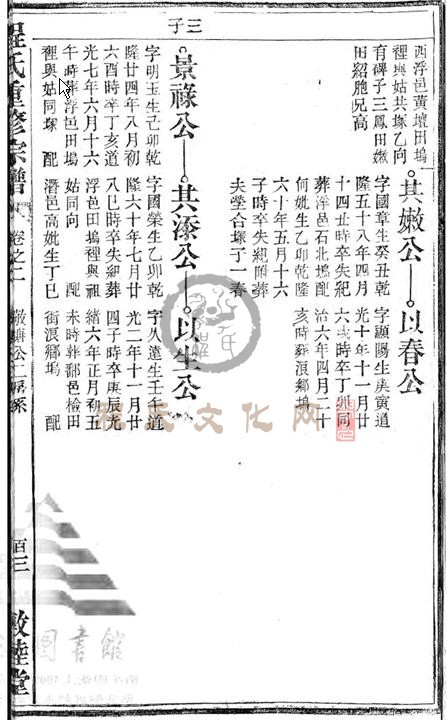 三子
西浮邑黃壇田塢
裡與姑共塚乙向
有碑子三鳳田嫩
田紹胞兄高
其嫩公—以春公
字國章生癸丑乾
隆五十八年四月
十四丑時卒失紀
葬浮邑石北塢配
何妣生乙卯乾隆
六十年五月十六
子時卒失紀附葬
夫塋合塚子一春
字顯陽生庚寅道
光十年十一月廿
六戌時卒丁卯同
治六年四月二十
亥時葬浪鄉塢
景祿公—其添公—以生公
字明玉生己卯乾
隆廿四年八月初
六酉時卒丁亥道
光七年六月十六
午時葬浮邑田塢
裡與姑同塚 配
字國榮生乙卯乾
隆六十年七月廿
八巳時卒失紀葬
浮邑田塢裡與祖
姑同向 配
濳邑高妣生丁巳
字人遠生壬午道
光二年十一月廿
四子時卒庚辰光
緒六年正月初五
未時葬鄱邑檢田
街浪鄉塢 配
程氏重修宗譜
卷之二
二房系
百三
敦睦堂
程氏文化网
圖書館